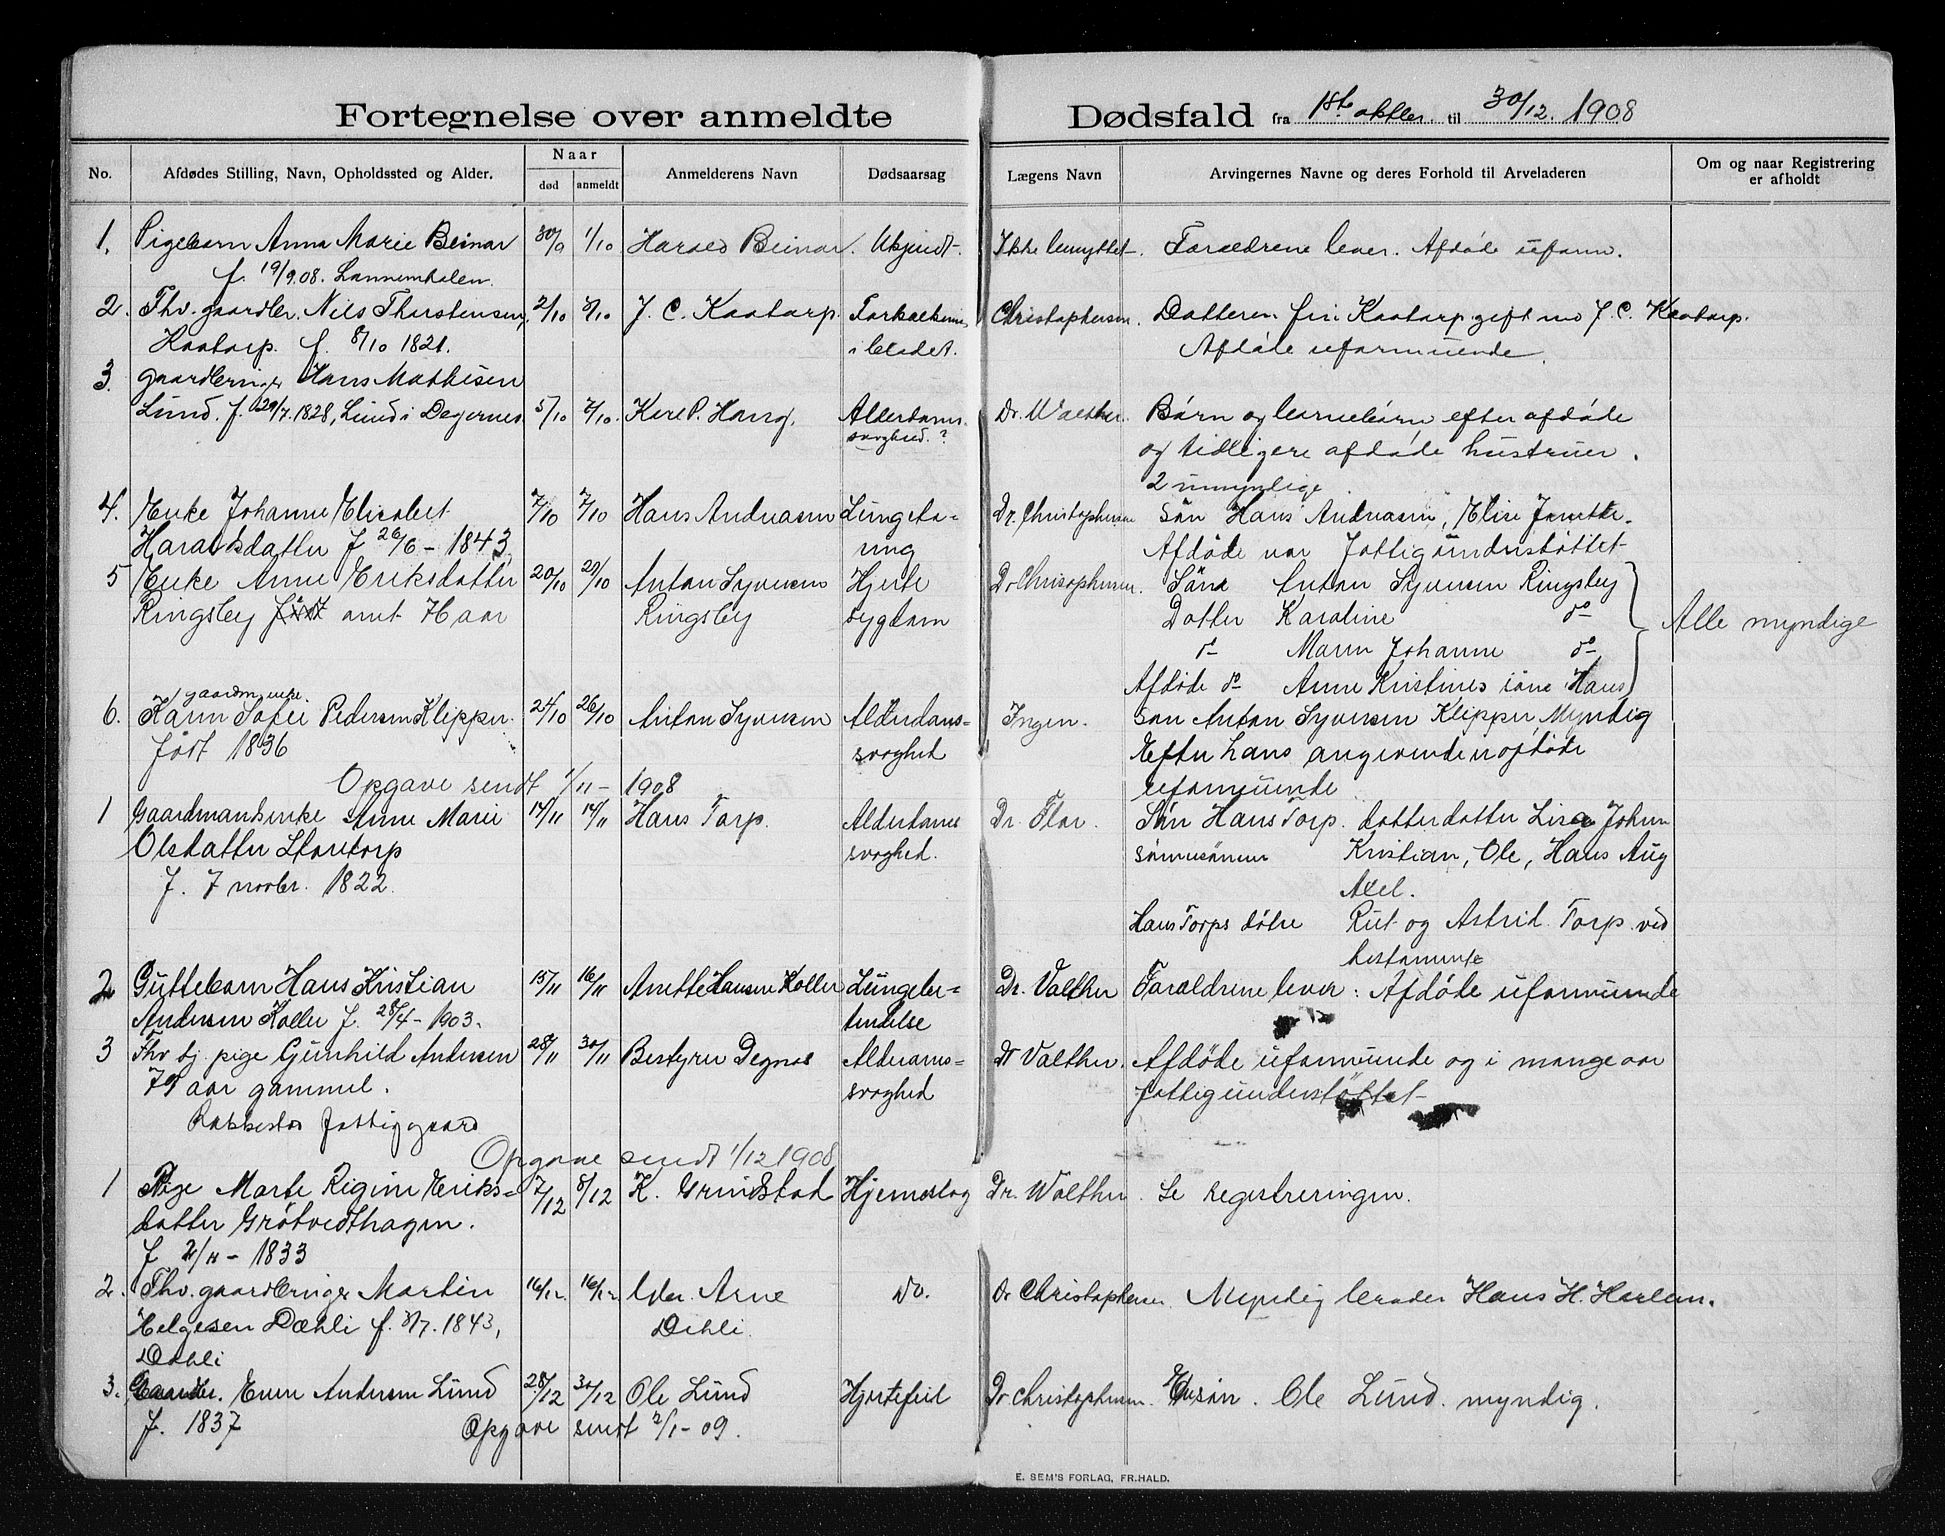 Fortegnelse over anmeldte Dødsfald fra 1ste oktbr. til 30/12. 1908
No. Afdødes Stilling, Navn, Opholdssted og Alder. Naar død anmeldt Anmelderens Navn Dødsaarsag Lægens Navn Arvingernes Navne og deres Forhold til Arveladeren Om og naar Registrering er afholdt
1. Pigebarn Anna Marie Beinar 30/9 1/10 Harald Beinar. Ukjendt. Ikke benyttet Forældrene lever. Afdøde uform.
f. 19/9.08.
2. Fhv. gaardbr. Nils Thorstensen, 2/10 3/10 J. C. Kaatorp Forkalkning Christophersen. Datteren fru Kaatorp gift m J. C. Kaatorp.
Kaatorp. f. 8/10 1821. i blodet. Afdøde uformuende.
3. gaardbruger Hans Mathisen
Lund. f. 29/7. 1828, Lund i Degernes 5/10 7/10 Kirel P. Haug. Alderdoms- Dr. Walther. Børn og barnebørn efter afdøde
svaghed. ? og tidligere afdøde hustruer.
2 umyndige.
4. Enke Johanne Elisabet 7/10 7/10 Hans Andreasen Lungetæ- Dr. Christophersen Søn Hans Andreasen, Elise Janette.
Haraldsdatter f 26/6 - 1843 ring Afdøde var fattigunderstøttet
5 Enke Anne Eriksdatter 20/10 29/10 Anton Syversen Hjerte Dr Chrisophersen. Sønn Anton Syversen Ringsby
Ringsby født omt. 74 aar Ringsby sygdom Datter Karoline do Alle myndige
do Maren Johanne do
Afdøde do Anne Kristines søne Hans
gaardm. enke.
6. Karen Sofie Pedersen Klipper. 24/10 26/10 Anton Syversen Alderdoms- Ingen. søn Anton Syversen Klipper, Myndig
født 1836 svaghed Efter hans angivende er afdøde
Opgave sendt 1/11 - 1908 uformuende
1 Gaardmandsenke Anne Marie 14/11 14/11 Hans Torp. Alderdoms Dr. Flor. Søn Hans Torp. datterdatter Lisa Johan
Olsdatter Stortorp svaghed. sønnesønnen Kristian, Ole, Hans Aug
f. 7 novbr. 1822. Axel.
Hans Torps døtre Rut og Astrid Torp ved
testamente
2 Guttebarn Hans Kristian 15/11 16/11 Anette Hansen Koller Lungebe- Dr. Valther Forældrene lever: Afdøde uformuende
Andersen Koller f. 28/4 - 1903. tendelse
3 Fhv tj. pige Gunhild Andersen 28/11 30/11 Bestyrer Degnes Alderdoms- Dr Valther. Afdøde uformuende og i mange aar
79 aar gammel. svaghed fattigunderstøttet
Rakkestad fattiggaard
Opgave sendt 1/12 1908
1 Pige Marte Regine Eriks- 7/12 8/12 K. Grindstad Hjerneslag Dr. Walther. Se registreringen.
datter Grøtvedthagen.
f 2/11 - 1833
2. Fhv. gaardbruger Martin 16/12. 16/12 Arne do. Dr Christophersen Myndig broder Hans H. Harlem.
Helgesen Dæhli f. 3/7. 1843, Dæhli.
Dæhli
3. Gaardbr. Even Andersen Lund 28/12 30/12 Ole Lund Hjertefeil Dr Christophersen. En søn. Ole Lund. myndig.
f. 1837 Opgave sendt 2/1 - 09.
E. SEM'S FORLAG, FR.HALD.